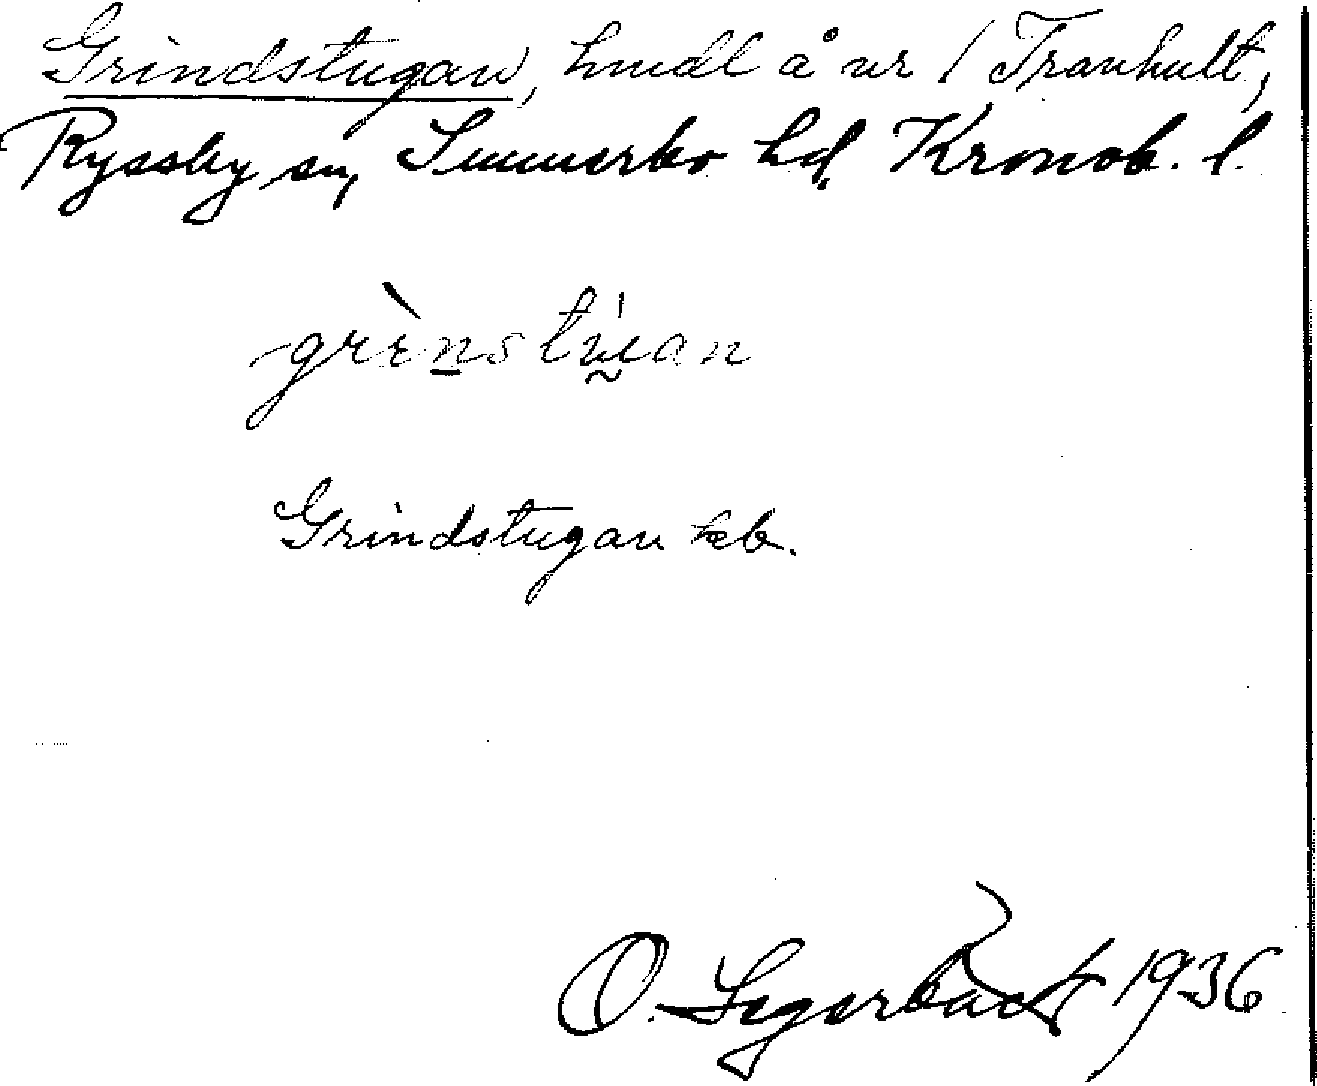 Grindstugan, hmdl å nr 1 Tranhult,
Ryssby sn, Sunnerbo hd, Kronob. l.
grinstuan
Grindstugan kb.
O. Segerbäck 1936